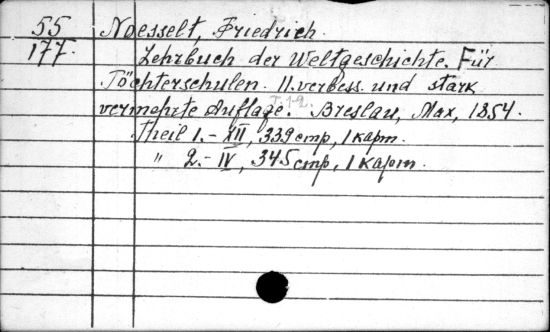 55 Noesselt, Friedrich.
177. Lehrbuch der Weltgeschichte. Für
Töchterschulen. 11.verbess. und stark
vermehrte Auflage. T.1-2. Breslau, Max, 1854.
Theil 1.- XII, 339 стр, 1 карт.
" 2.- IV, 345 стр, 1 карт.